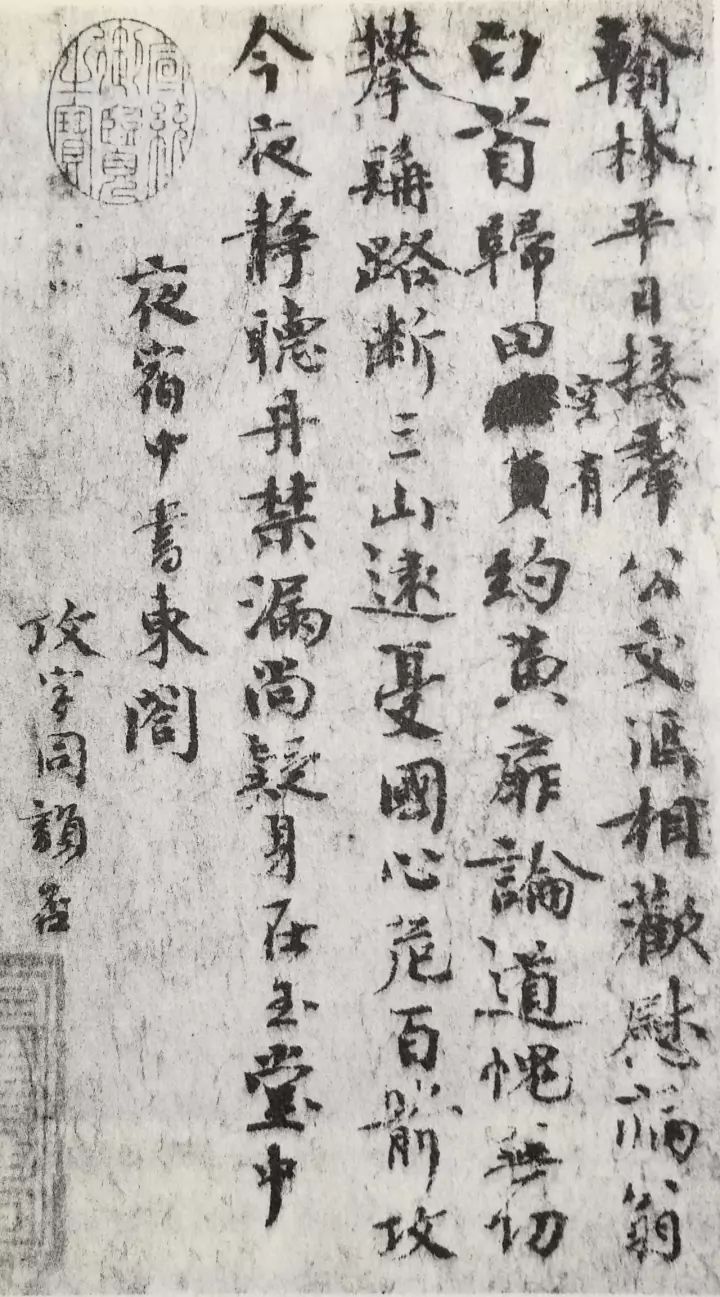 翰林平日接羣公文酒相歡慰病翁
空有
白首歸田約黄扉論道愧無功
攀髯路断三山遠憂國心危百箭攻
今夜靜聽丹禁漏尚疑身在玉堂中
夜宿中書東閣
攻字同韻否
宣統御覽之寶